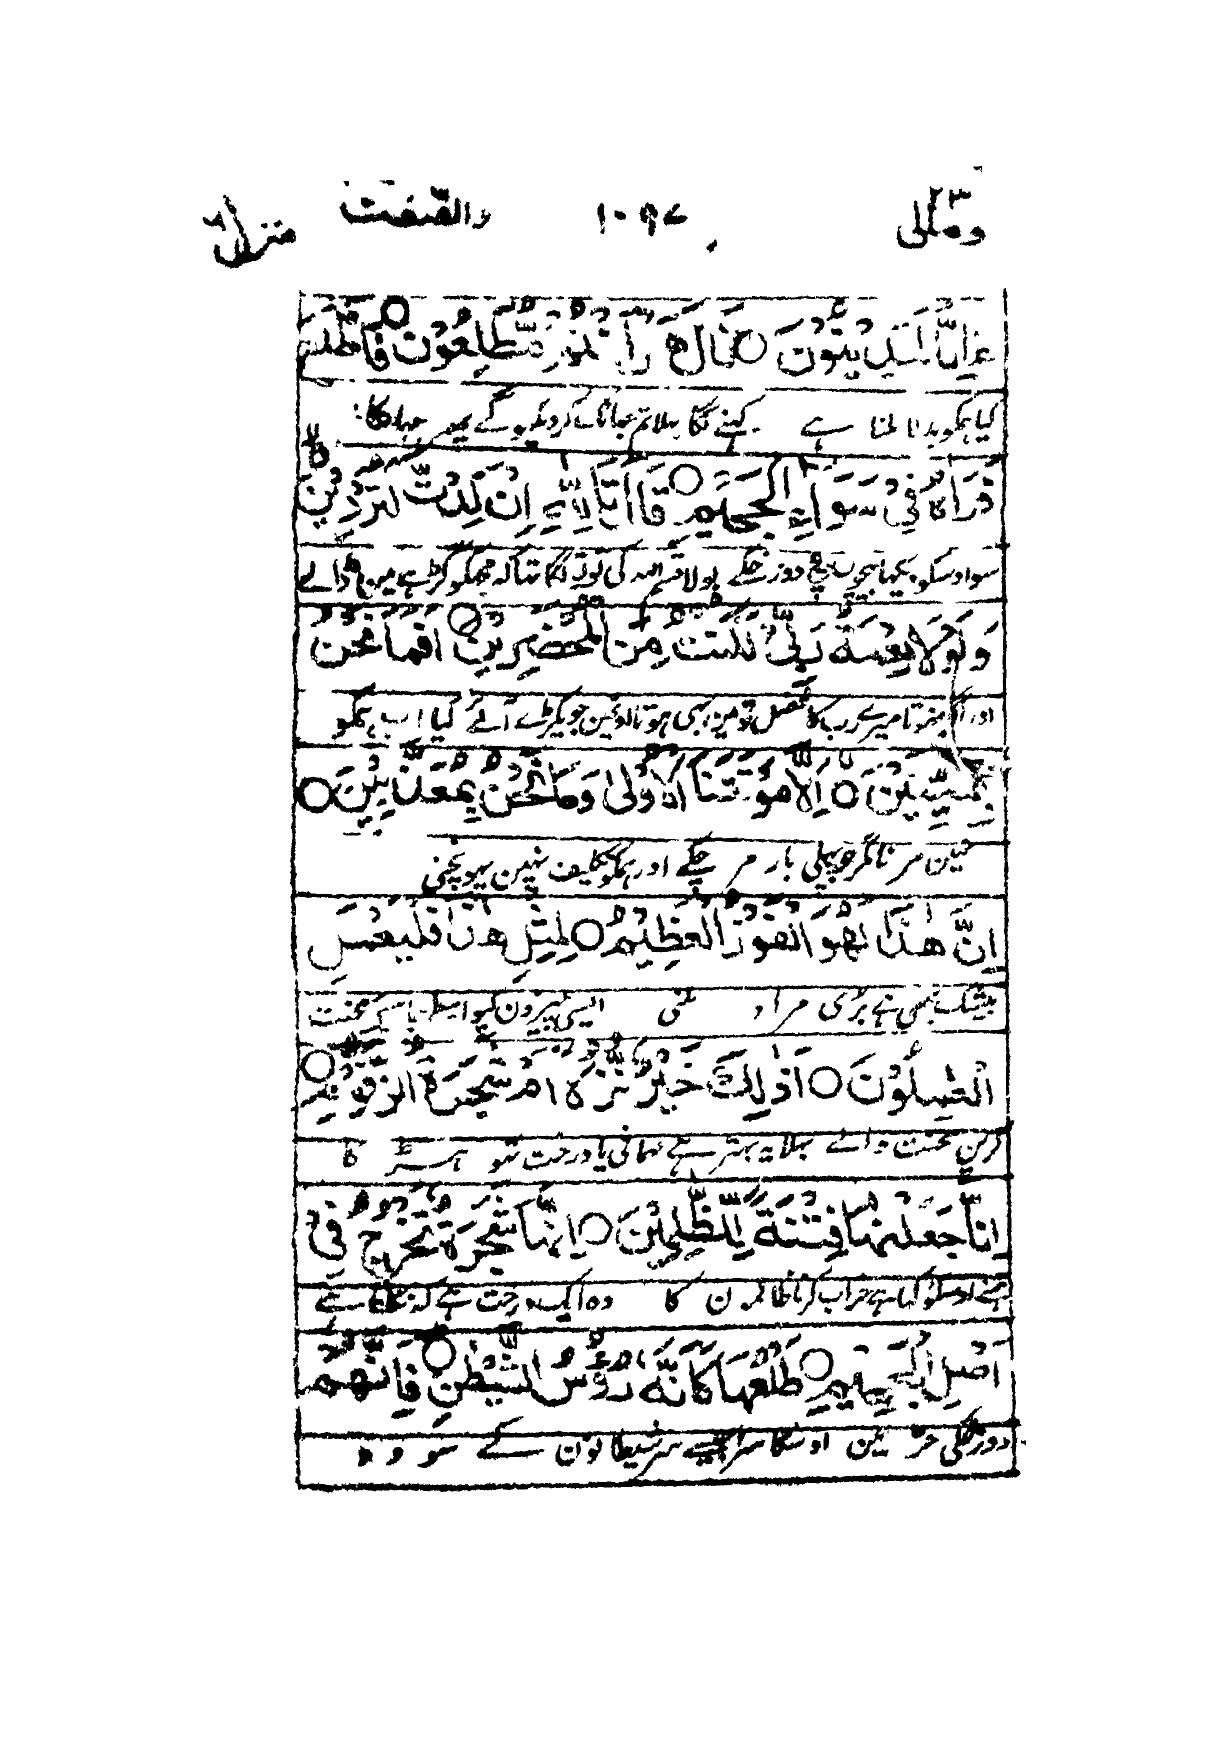 ومالی ٢٣ ١٠٩٧ والصّٰفّٰت منزل ٦
ءَاِنَّا لَمَدِيْنُوْنَ ○ قَالَ هَلْ اَنْتُمْ مُّطَّلِعُوْنَ ○ فَاطَّلَعَ
کیا ہمکو بدلا ملنا ہے کہنے لگا بہلا تم جہانک کر دیکھوگے پھر جہانکا
فَرَاٰهُ فِيْ سَوَآءِ الْجَحِيْمِ ○ قَالَ تَاللّٰهِ اِنْ كِدْتَّ لَتُرْدِيْنِ
سو اوسکو دیکھا بیچوں بیچ دوزخ کے بولا قسم اللہ کی تو تو لگا تھا کہ مجھکو گڑہے مین ڈالے
وَلَوْلَا نِعْمَةُ رَبِّيْ لَكُنْتُ مِنَ الْمُحْضَرِيْنَ ○ اَفَمَا نَحْنُ
اور اگر نہوتا میرے رب کا فضل تو مین بہی ہوتا اونہین جو پکڑے آئے کیا اب ہمکو
بِمَيِّتِيْنَ ○ اِلَّا مَوْتَتَنَا الْاُوْلٰى وَمَا نَحْنُ بِمُعَذَّبِيْنَ ○
نہین مرنا مگر جو پہلی بار مر چکے اور ہمکو تکلیف نہین پہونچنی
اِنَّ هٰذَا لَهُوَ الْفَوْزُ الْعَظِيْمُ ○ لِمِثْلِ هٰذَا فَلْيَعْمَلِ
بیشک یہی ہے بڑی مراد ملنی ایسی چیزون کے واسطے چاہیے محنت
الْعٰمِلُوْنَ ○ اَذٰلِكَ خَيْرٌ نُّزُلًا اَمْ شَجَرَةُ الزَّقُّوْمِ ○
کرین محنت والے بہلا یہ بہتر ہے مہمانی یا درخت سہنڈ کا
اِنَّا جَعَلْنٰهَا فِتْنَةً لِّلظّٰلِمِيْنَ ○ اِنَّهَا شَجَرَةٌ تَخْرُجُ فِيْ
ہمنے اوسکو کیا ہے خراب کرنا ظالمون کا وہ ایک درخت ہے کہ نکلتا ہے
اَصْلِ الْجَحِيْمِ ○ طَلْعُهَا كَاَنَّهٗ رُءُوْسُ الشَّيٰطِيْنِ ○ فَاِنَّهُمْ
دوزخ کی جڑ مین اوسکا سرا جیسے سر شیطانون کے سو وہ